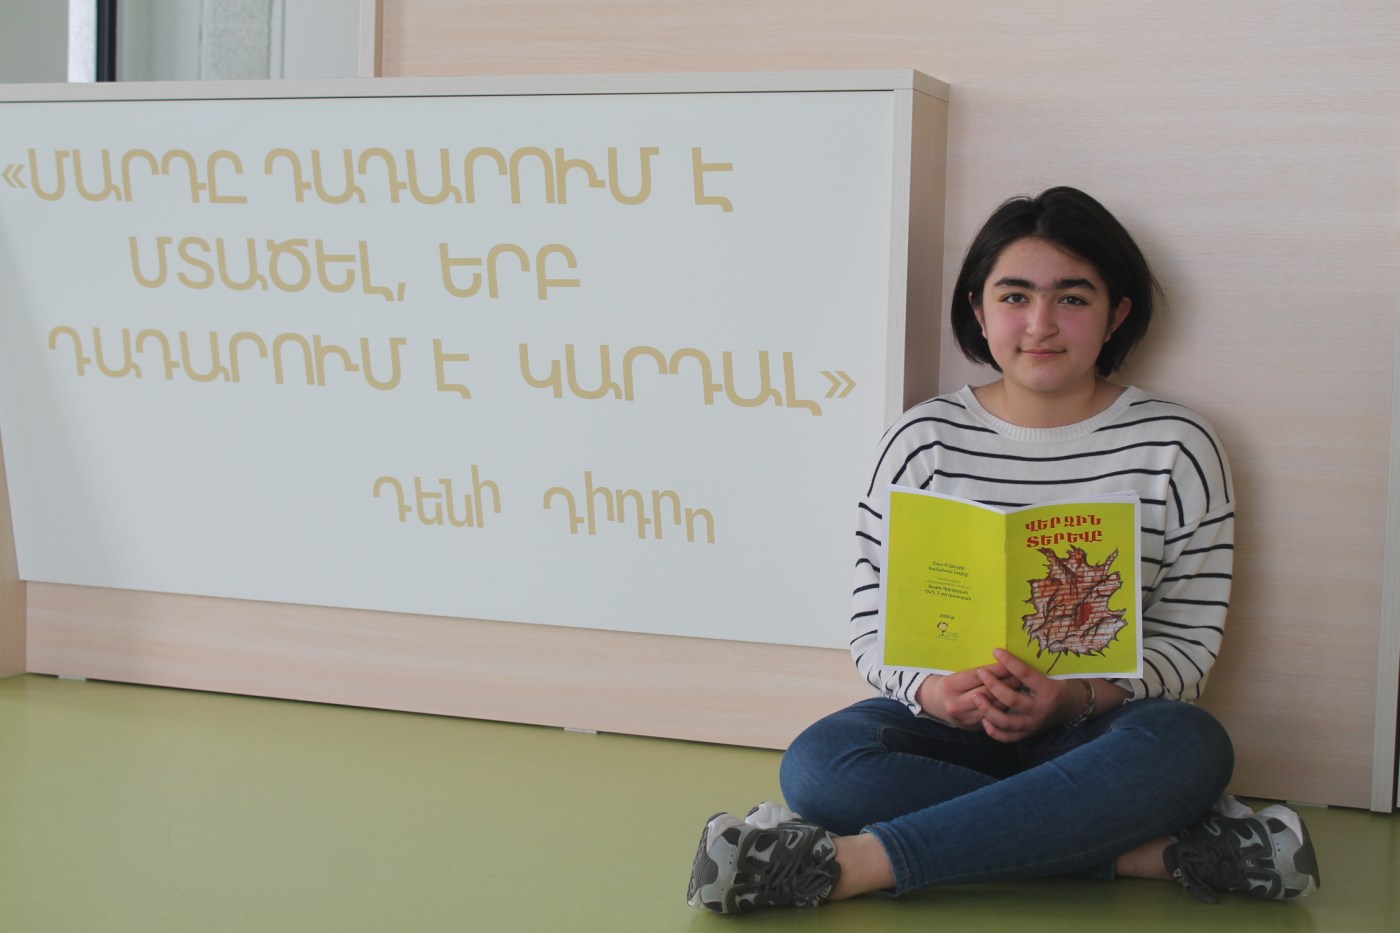 «ՄԱՐԴԸ ԴԱԴԱՐՈՒՄ Է
ՄՏԱԾԵԼ, ԵՐԲ
ԴԱԴԱՐՈՒՄ Է ԿԱՐԴԱԼ»
Դենի Դիդրո
ՎԵՐՋԻՆ
ՏԵՐԵՎԸ